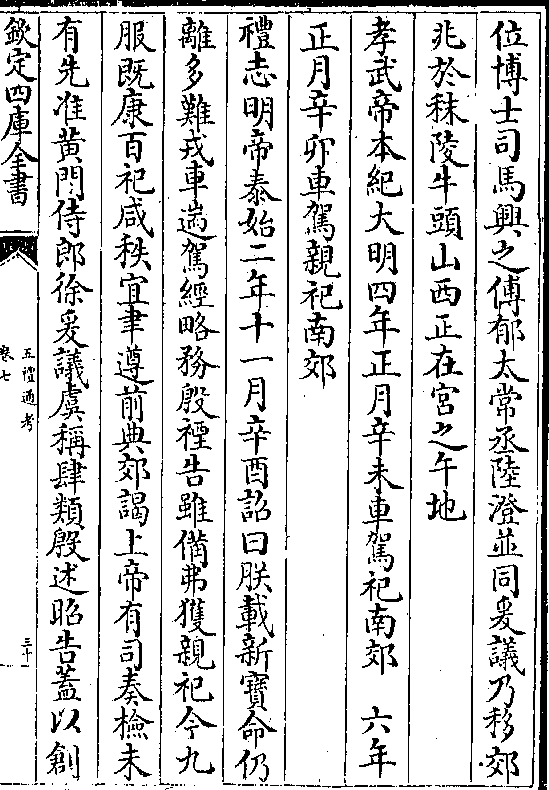 位博士司馬興之傅郁太常丞陸澄並同爰議乃移郊
兆於秣陵牛頭山西正在宮之午地
孝武帝本紀大明四年正月辛未車駕祀南郊　六年
正月辛卯車駕親祀南郊
禮志明帝泰始二年十一月辛酉詔曰朕載新寶命仍
離多難戎車遄駕經略務殷禋告雖備弗獲親祀今九
服既康百祀咸秩宜聿遵前典郊謁上帝有司奏檢未
有先准黃門侍郎徐爰議虞稱肆類殷述昭告蓋以創
欽定四庫全書
五禮通考
卷七
三十一